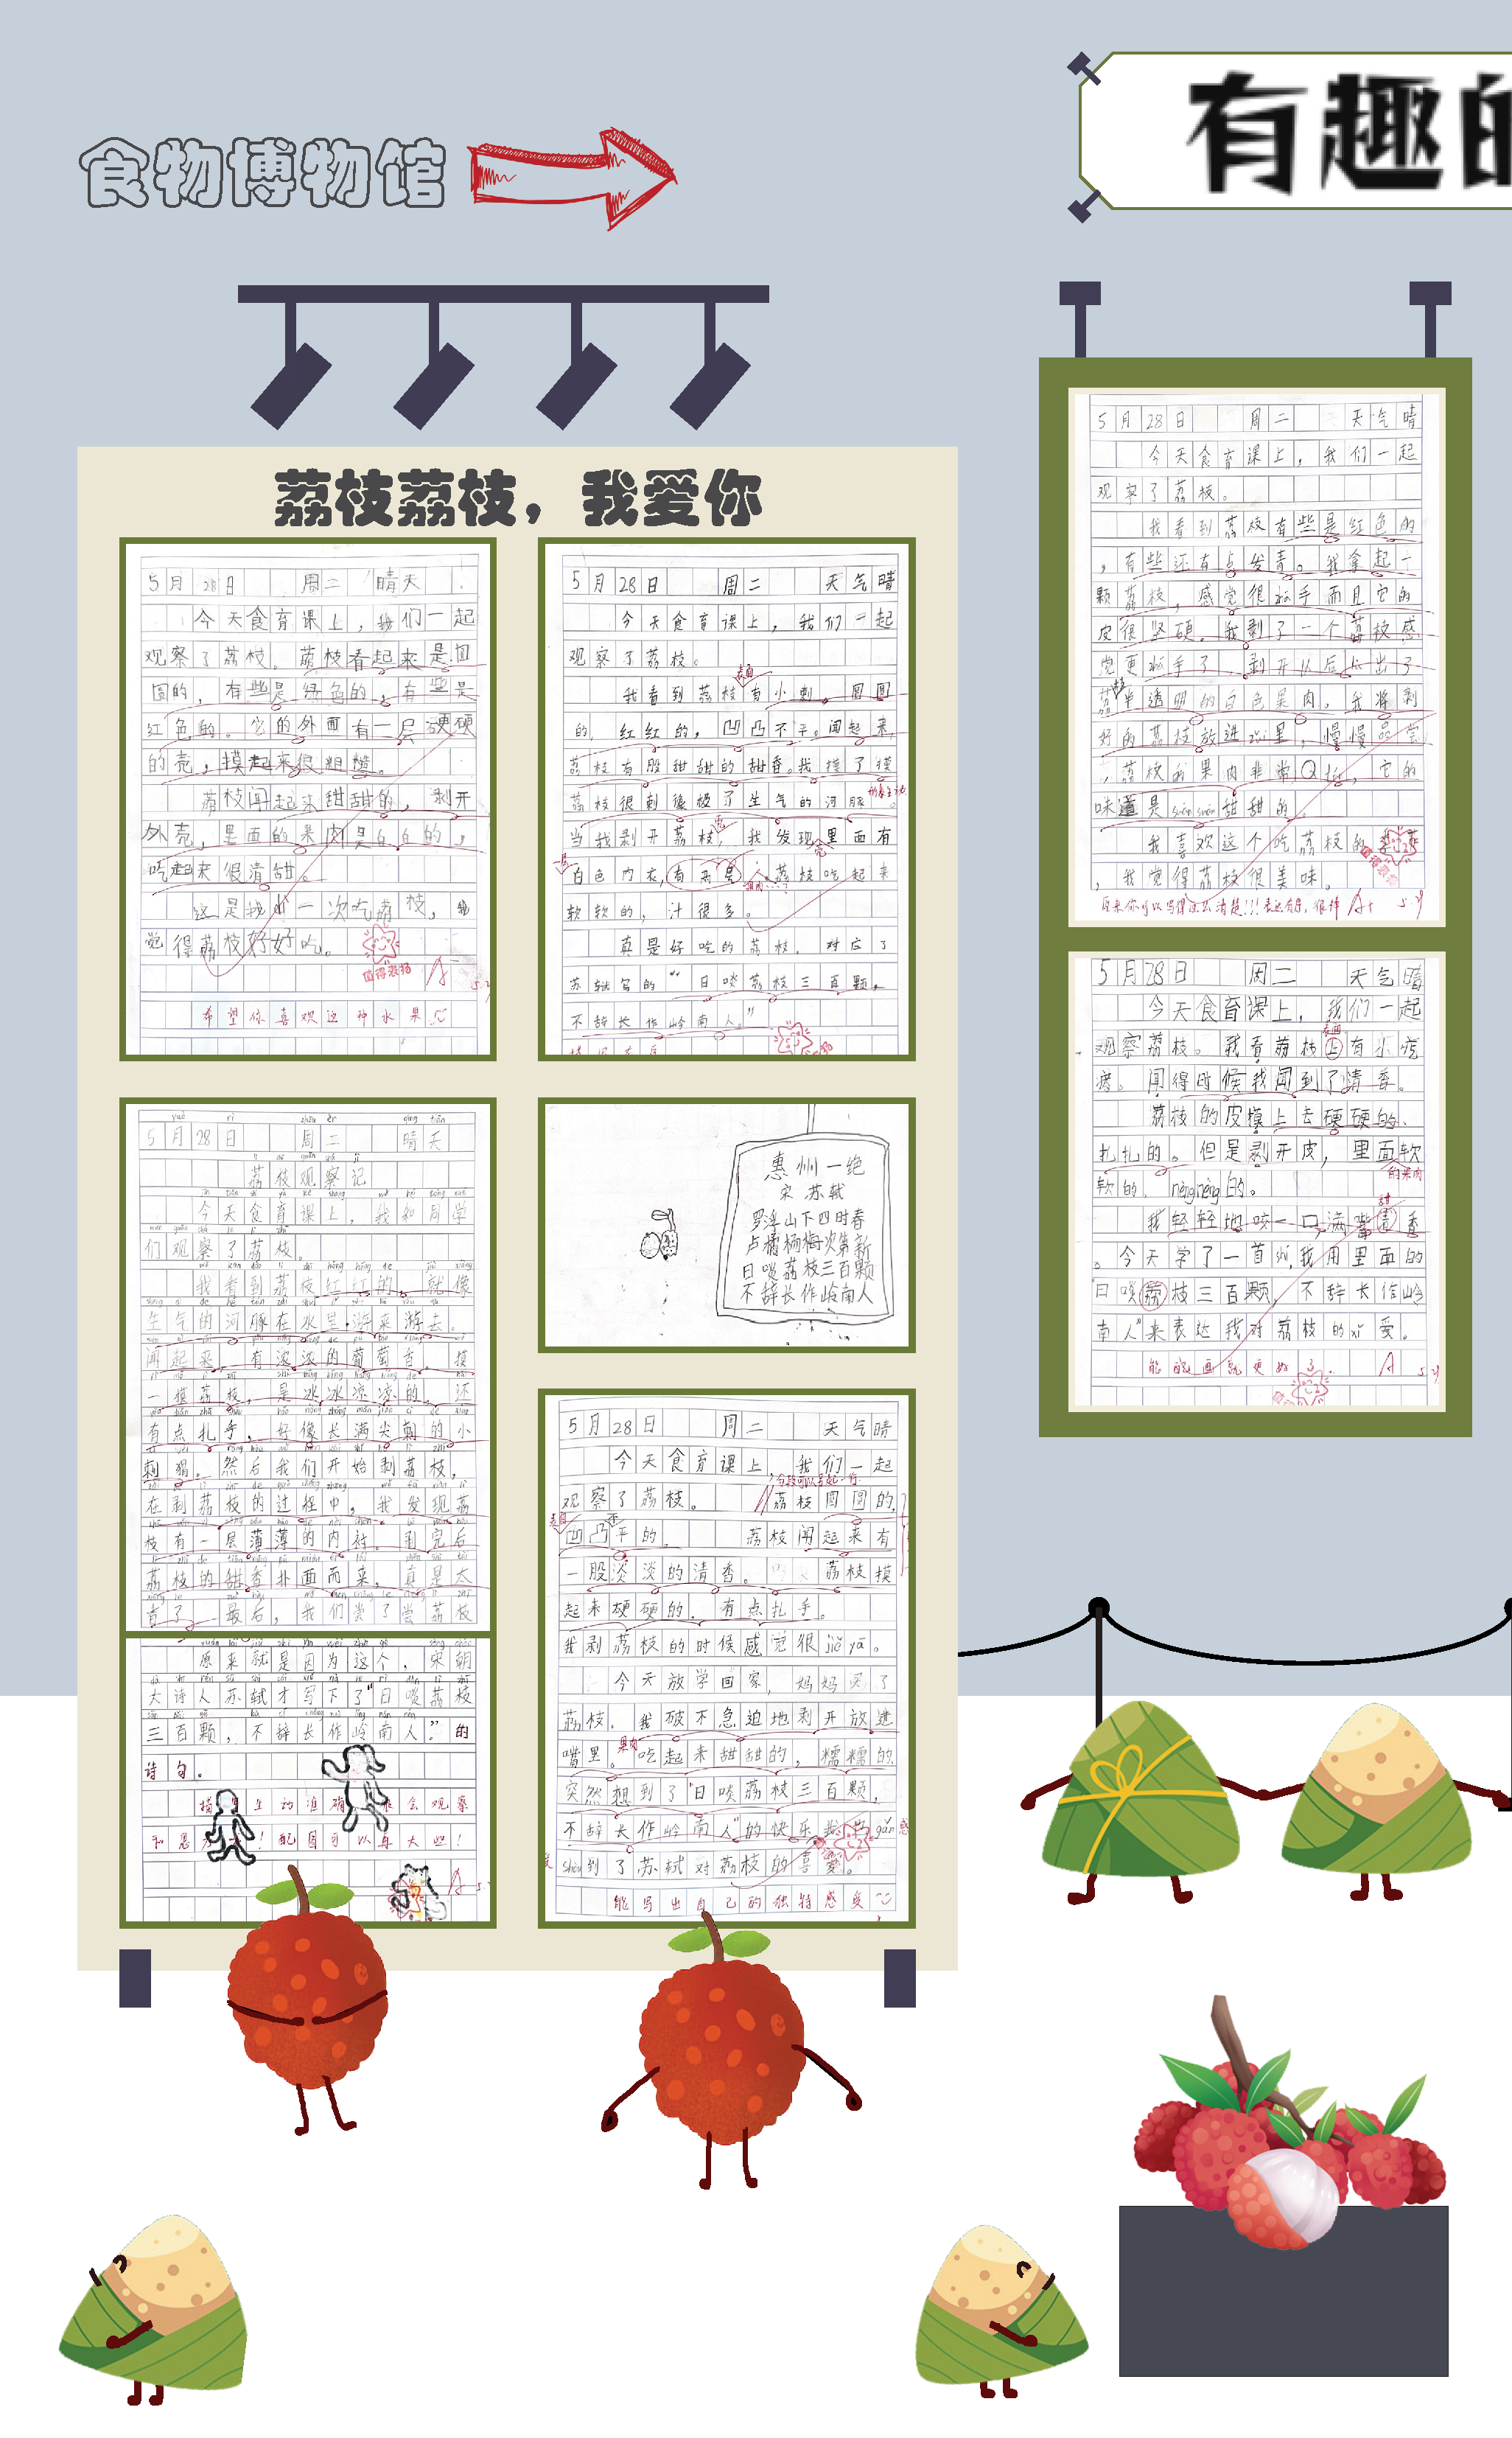 食物博物馆
有趣的
荔枝荔枝，我爱你
5月28日 周二 晴天
今天食育课上，我们一起
观察了荔枝。荔枝看起来是圆
圆的，有些是绿色的，有些是
红色的。它的外面有一层硬硬
的壳，摸起来很粗糙。
荔枝闻起来甜甜的，剥开
外壳，里面的果肉是白白的，
吃起来很清甜。
这是我第一次吃荔枝，我
觉得荔枝好好吃。
值得表扬
A
希望你喜欢这种水果
5月28日 周二 天气晴
今天食育课上，我们一起
观察了荔枝。
表面
我看到荔枝有小刺，圆圆
的，红红的，凹凸不平。闻起来
荔枝有股甜甜的甜香。我摸了摸
荔枝很刺像极了生气的河豚。
当我剥开荔枝，我发现里面有
白色内衣，有两层，荔枝吃起来
软软的，汁很多。
真是好吃的荔枝。对应了
苏轼写的“日啖荔枝三百颗，
不辞长作岭南人。”
yuè rì zhōu èr qíng tiān
5月28日 周二 晴天
荔枝观察记
今天食育课上，我和同学
们观察了荔枝。
我看到荔枝红红的，就像
生气的河豚在水里游来游去。
闻起来，有浓浓的葡萄香。摸
一摸荔枝，是冰冰凉凉的，还
有点扎手，好像长满尖刺的小
刺猬。然后我们开始剥荔枝，
在剥荔枝的过程中，我发现荔
枝有一层薄薄的内衬。剥完后
荔枝的甜香扑面而来，真是太
香了。最后，我们尝了尝荔枝
原来就是因为这个，宋朝
大诗人苏轼才写下了“日啖荔枝
三百颗，不辞长作岭南人？”的
诗句。
惠州一绝
宋 苏轼
罗浮山下四时春
卢橘杨梅次第新
日啖荔枝三百颗
不辞长作岭南人
5月28日 周二 天气晴
今天食育课上，我们一起
观察了荔枝。 荔枝圆圆的，
凹凸不平的。 荔枝闻起来有
一股淡淡的清香。 荔枝摸
起来硬硬的，有点扎手。
我剥荔枝的时候感觉很jiě yā。
今天放学回家，妈妈买了
荔枝。我破不急迫地剥开放进
嘴里。果肉吃起来甜甜的，糯糯的
突然想到了“日啖荔枝三百颗，
不辞长作岭南人”的快乐
shòu到了苏轼对荔枝的喜爱。
能写出自己的独特感受
5月28日 周二 天气晴
今天食育课上，我们一起
观察了荔枝。
我看到荔枝有些是红色的
，有些还有点发青。我拿起一
颗荔枝，感觉很zhā手而且它的
皮很坚硬。我剥了一个荔枝感
觉更zhā手了，剥开以后长出了
荔枝半透明的白色果肉。我将剥
好的荔枝放进zuǐ里，慢慢品尝
，荔枝的果肉非常Q tán，它的
味道是suān suān甜甜的。
我喜欢这个吃荔枝的
，我觉得荔枝很美味。
A+
5月28日 周二 天气晴
今天食育课上，我们一起
观察荔枝。我看荔枝上有小疙
瘩。闻得时候我闻到了清香。
荔枝的皮摸上去硬硬的、
扎扎的。但是剥开皮，里面软
的果肉
软的，nèngnèng的。
我轻轻地咬一口，满嘴清香
。今天学了一首shī，我用里面的
“日啖荔枝三百颗，不辞长作岭
南人”来表达我对荔枝的xǐ爱。
能配画就更好了。
A